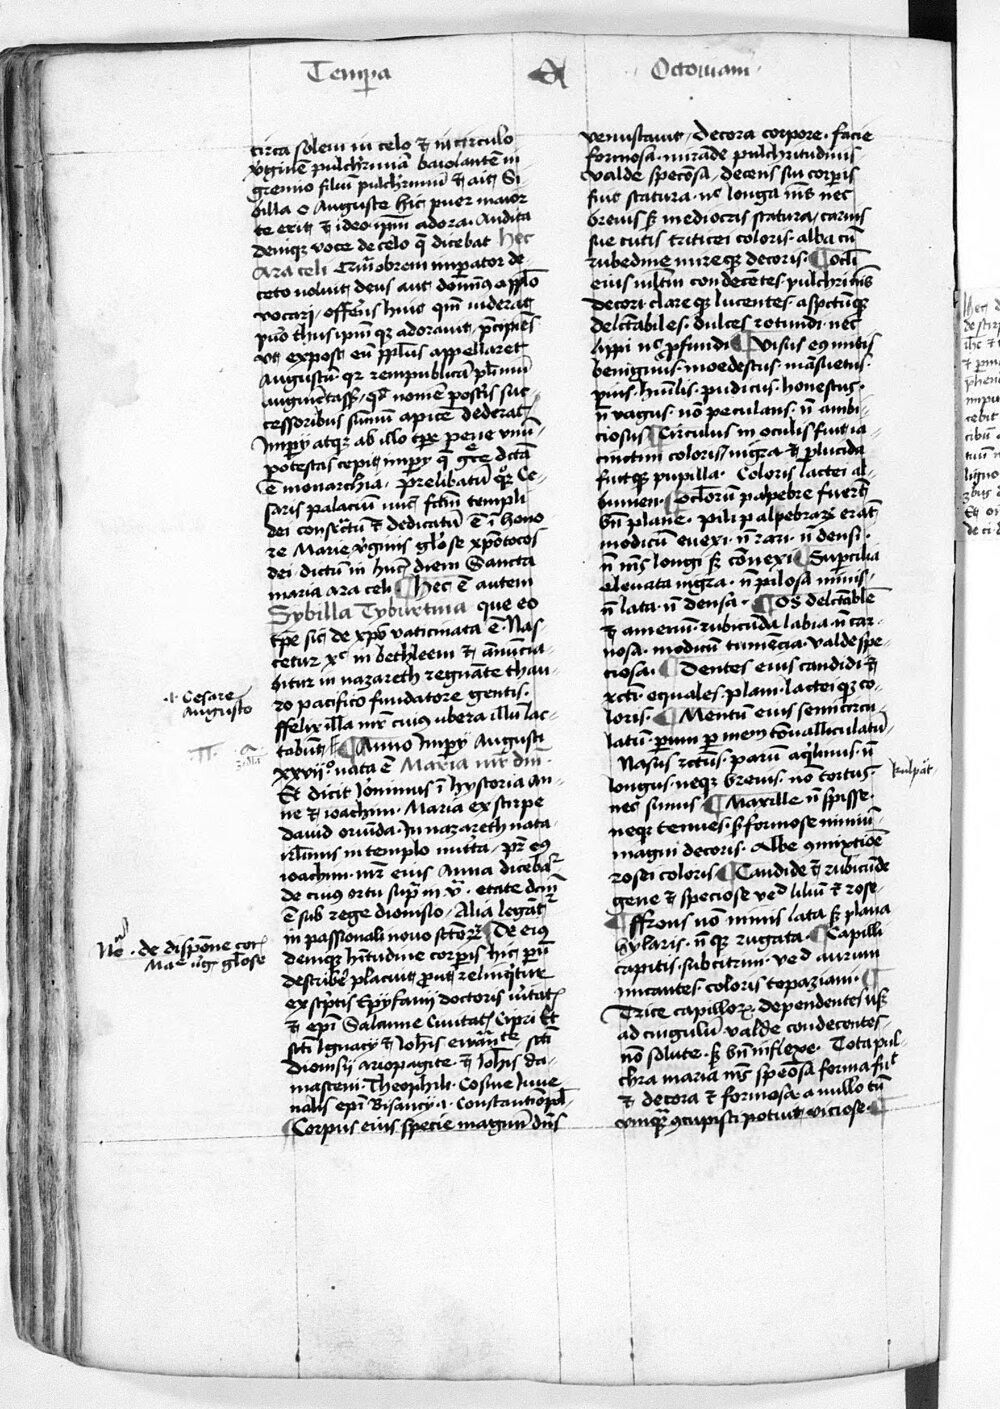 Tempora
Octoviani
circa solem in celo et in circulo
virginem pulcherrimam baiolantem in
gremio filium pulcherrimum et ait Si
billa o Auguste hic puer maior
te erit et ideo ipsum adora. Audita
denique voce de celo que dicebat hec
Ara celi Quamobrem imperator de
ceto noluit deus aut dominus appello
vocari, offerens huic quem viderat
puero thus ipsumque adoravit, precipiens
ut exposit eum populus appellaret
Augustum quia rempublicam plurimum
augmentasset, quod nomen posteris suc-
cessoribus summum apicem dederat
Imperij atque ab illo tempore pene unius
potestas cepit imperij que grece dicta
est monarchia. Prelibatum quoque Ce-
saris palacium nunc factum templi
dei consecratum et dedicatum est in hono
re Marie virginis gloriose xpotocos
dei dictum in hunc diem Sancta
maria ara celi Hec est autem
Sybilla Tyburtina que eo
tempore sic de christo vaticinata est. Nas-
cetur xc in bethleem et annuncia-
bitur in nazareth regnante thau-
ro pacifico fundatore gentis.
ffelix illa mater cuius ubera illum lac-
tabunt Anno Imperij Augusti
xxvijo. nata est Maria mater domini
Et dicit Ieronimus in hystoria an-
ne et ioachim. Maria ex stirpe
david oriunda. In nazareth nata.
irlimis in templo nutrita, pater eius
ioachim. mater eius Anna dicebatur
de cuius ortu supra in v. etate domini
est sub rege dionisio, Alia legantur
in passionali novo sanctorum De eius
denique habitudine corporis hic parum
describere placuit prout relinquitur
ex scriptis Epyfanij doctoris veritatis
et episcopi Salamine Civitatis Cipri Et
sancti Ignacij et Iohannis evangeliste sancti
dionisij ariopagite. et Iohannis da-
masceni. Theophili. Cosme Iuve
nalis episcopi Bisancij .i. Constantinopol
Corpus eius specie magnum dens
.i. Cesare
Augusto
Ne. de dispone cor
Mae virg gloose
venustavit, decora corpore. facie
formosa. mirande pulchritudinis
valde speciosa, decens sui corporis
fuit statura. nec longa nimis nec
brevis sed mediocris statura, carnis
sue cutis triticei coloris. alba cum
rubedine mireque decoris. Oculi
eius multum condecentes. pulchri nimis
decori clareque lucentes. aspectumque
delectabiles. dulces rotundi. nec
lippi nec profundi Visus eius mitis
benignus. moedestus. mansuetus.
pius. humilis. pudicus. honestus.
non vagus. non peculans. non ambi-
ciosus Circulus in oculis fuit ia-
cinctini coloris, nigra et plucida
fuitque pupilla. Coloris lactei al-
bumen. Oculorum palpebre fuerunt
bene plane. pili palpebrarum erant
modicum evexi. non rari. non densi.
non nimis longi sed convexi Supercilia
elevata nigra. non pilosa nimis.
non lata. non densa. Os delectabile
et amenum. rubicunda labia. non car-
nosa. modicum tumencia. valde spe-
ciosa. Dentes eius candidi et
recti. equales. plani. lacteique co-
loris. Mentum eius semicircu-
latum. parum per medium convalliculatum
Nasus rectus. parum aquilinus. non
longus. neque brevis. non tortus.
nec simus Maxille non spisse.
neque tenues. sed formose nimium
magni decoris. Albe commixtione
rosei coloris Candide et rubicunde
gene et speciose velud lilium et rose.
ffrons non nimis lata sed plana
hylaris. non que rugata. Capilli
capitis. subcitrini. velud aurum
micantes. coloris topaziam.
Trice capillorum. dependentes usque
ad cingulum. valde condecentes.
non solute. sed bene inflexe. Tota pul-
chra maria nimis speciosa forma fuit
et decora et formosa. a nullo tamen
umquam concupisci potuit viciose.